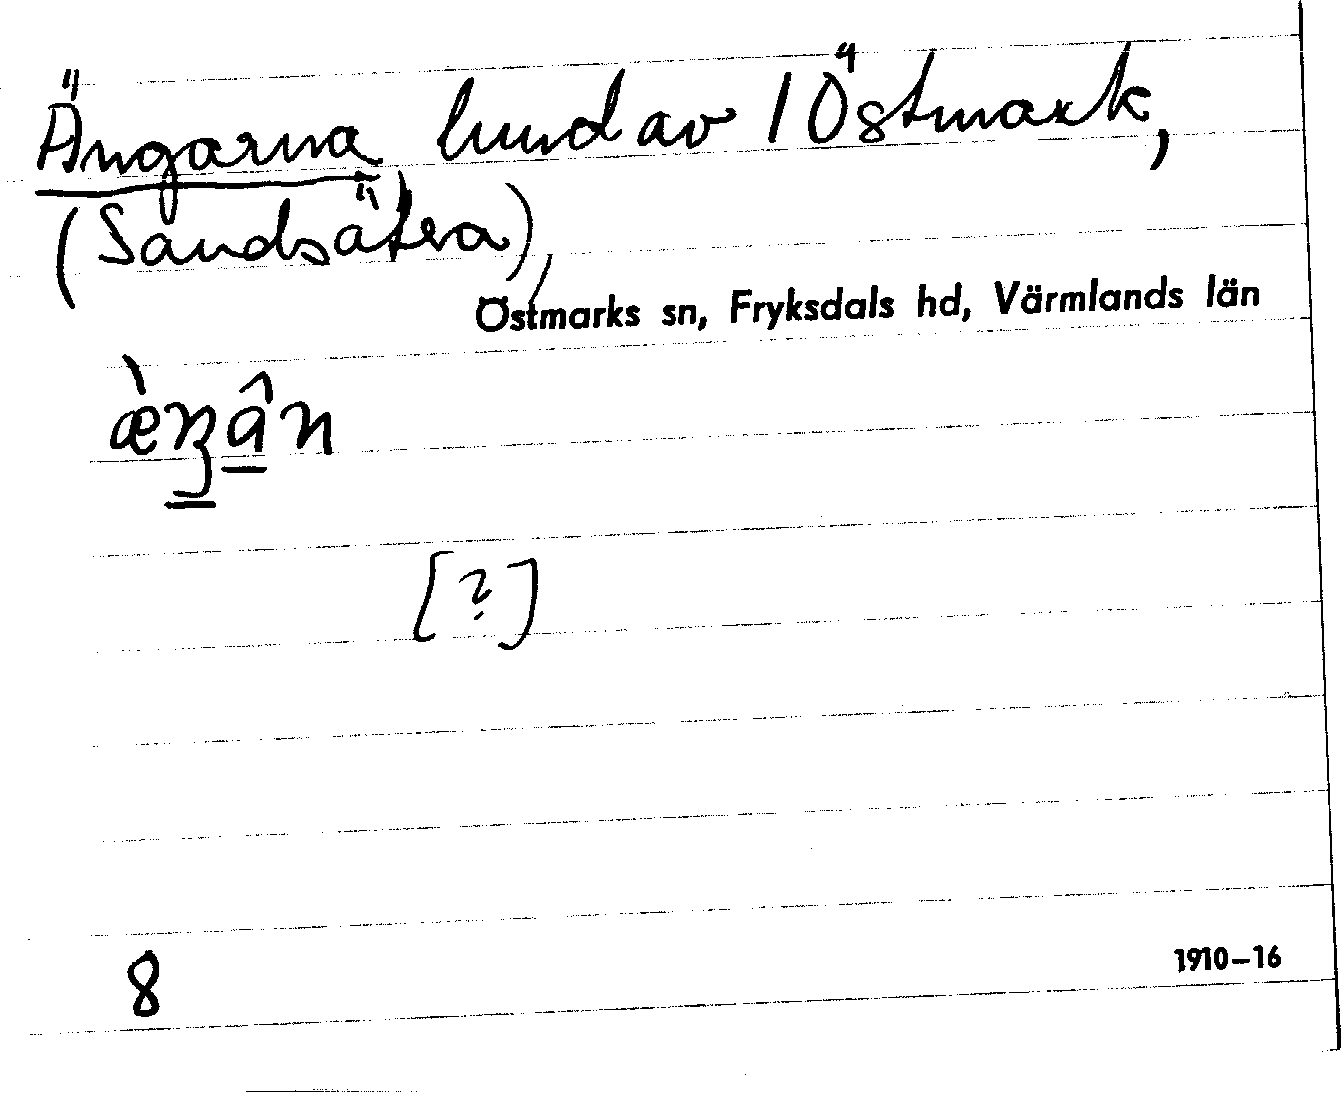 Ängarna hmd av 1 Östmark,
(Sandsätra),
Östmarks sn, Fryksdals hd, Värmlands län
[?]
8
1910–16